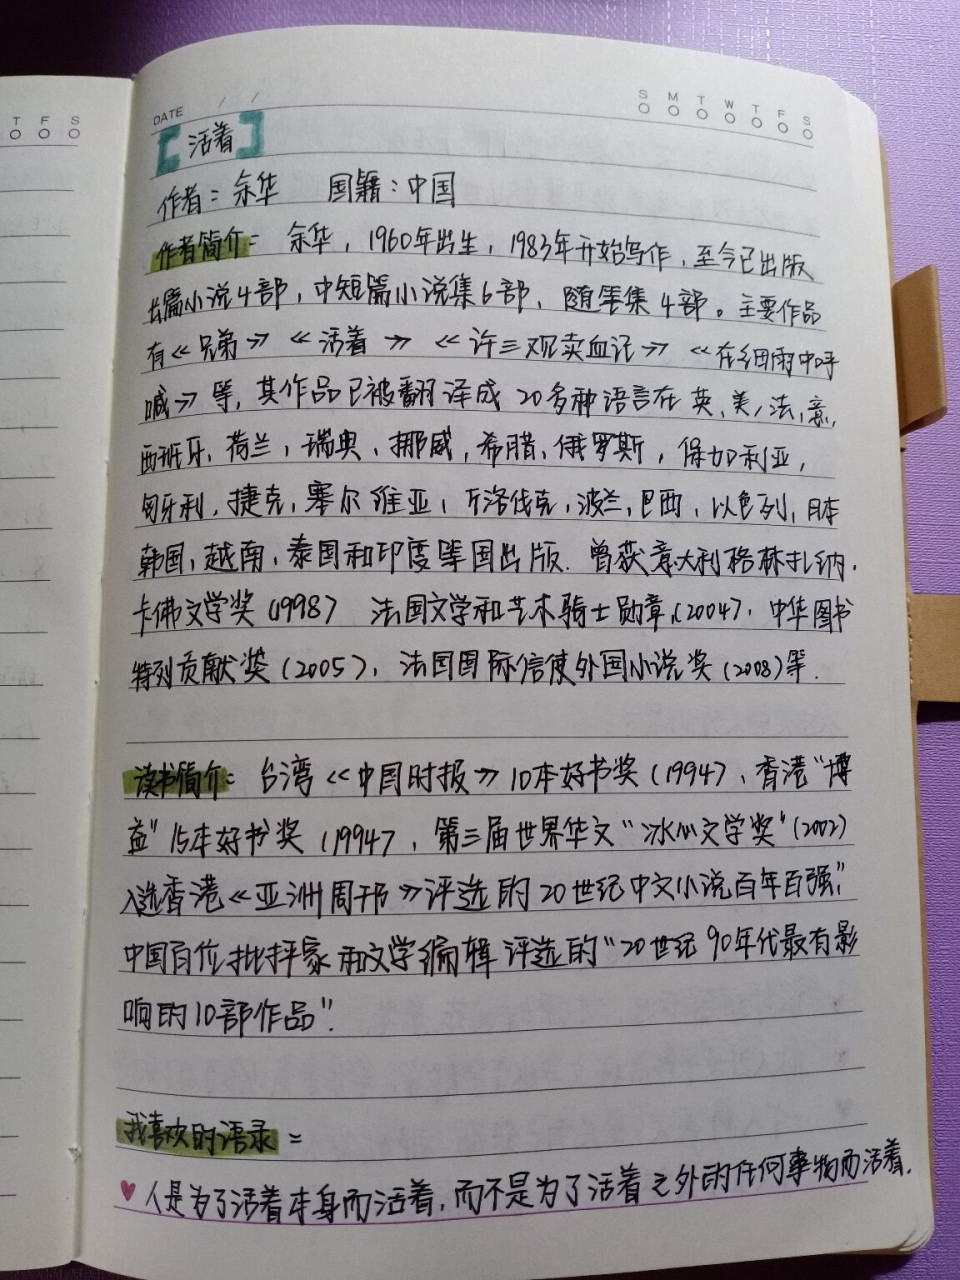 T F S
DATE / / S M T W T F S
【活着】
作者：余华 国籍：中国
作者简介：余华，1960年出生，1983年开始写作，至今已出版
长篇小说4部，中短篇小说集6部，随笔集4部。主要作品
有《兄弟》《活着》《许三观卖血记》《在细雨中呼
喊》等，其作品已被翻译成20多种语言在英、美、法、意，
西班牙、荷兰，瑞典、挪威，希腊、俄罗斯，保加利亚，
匈牙利，捷克，塞尔维亚，斯洛伐克，波兰，巴西，以色列，日本
韩国，越南，泰国和印度等国出版．曾获意大利格林扎纳．
卡佛文学奖（1998） 法国文学和艺术骑士勋章（2004），中华图书
特别贡献奖（2005），法国国际信使外国小说奖（2008）等．
读书简介：台湾《中国时报》10本好书奖（1994），香港“博
益”15本好书奖（1994），第三届世界华文“冰心文学奖”（2002）
入选香港《亚洲周刊》评选的20世纪中文小说百年百强”，
中国百位批评家和文学编辑评选的“20世纪90年代最有影
响的10部作品”．
我喜欢的语录：
♥人是为了活着本身而活着，而不是为了活着之外的任何事物而活着．